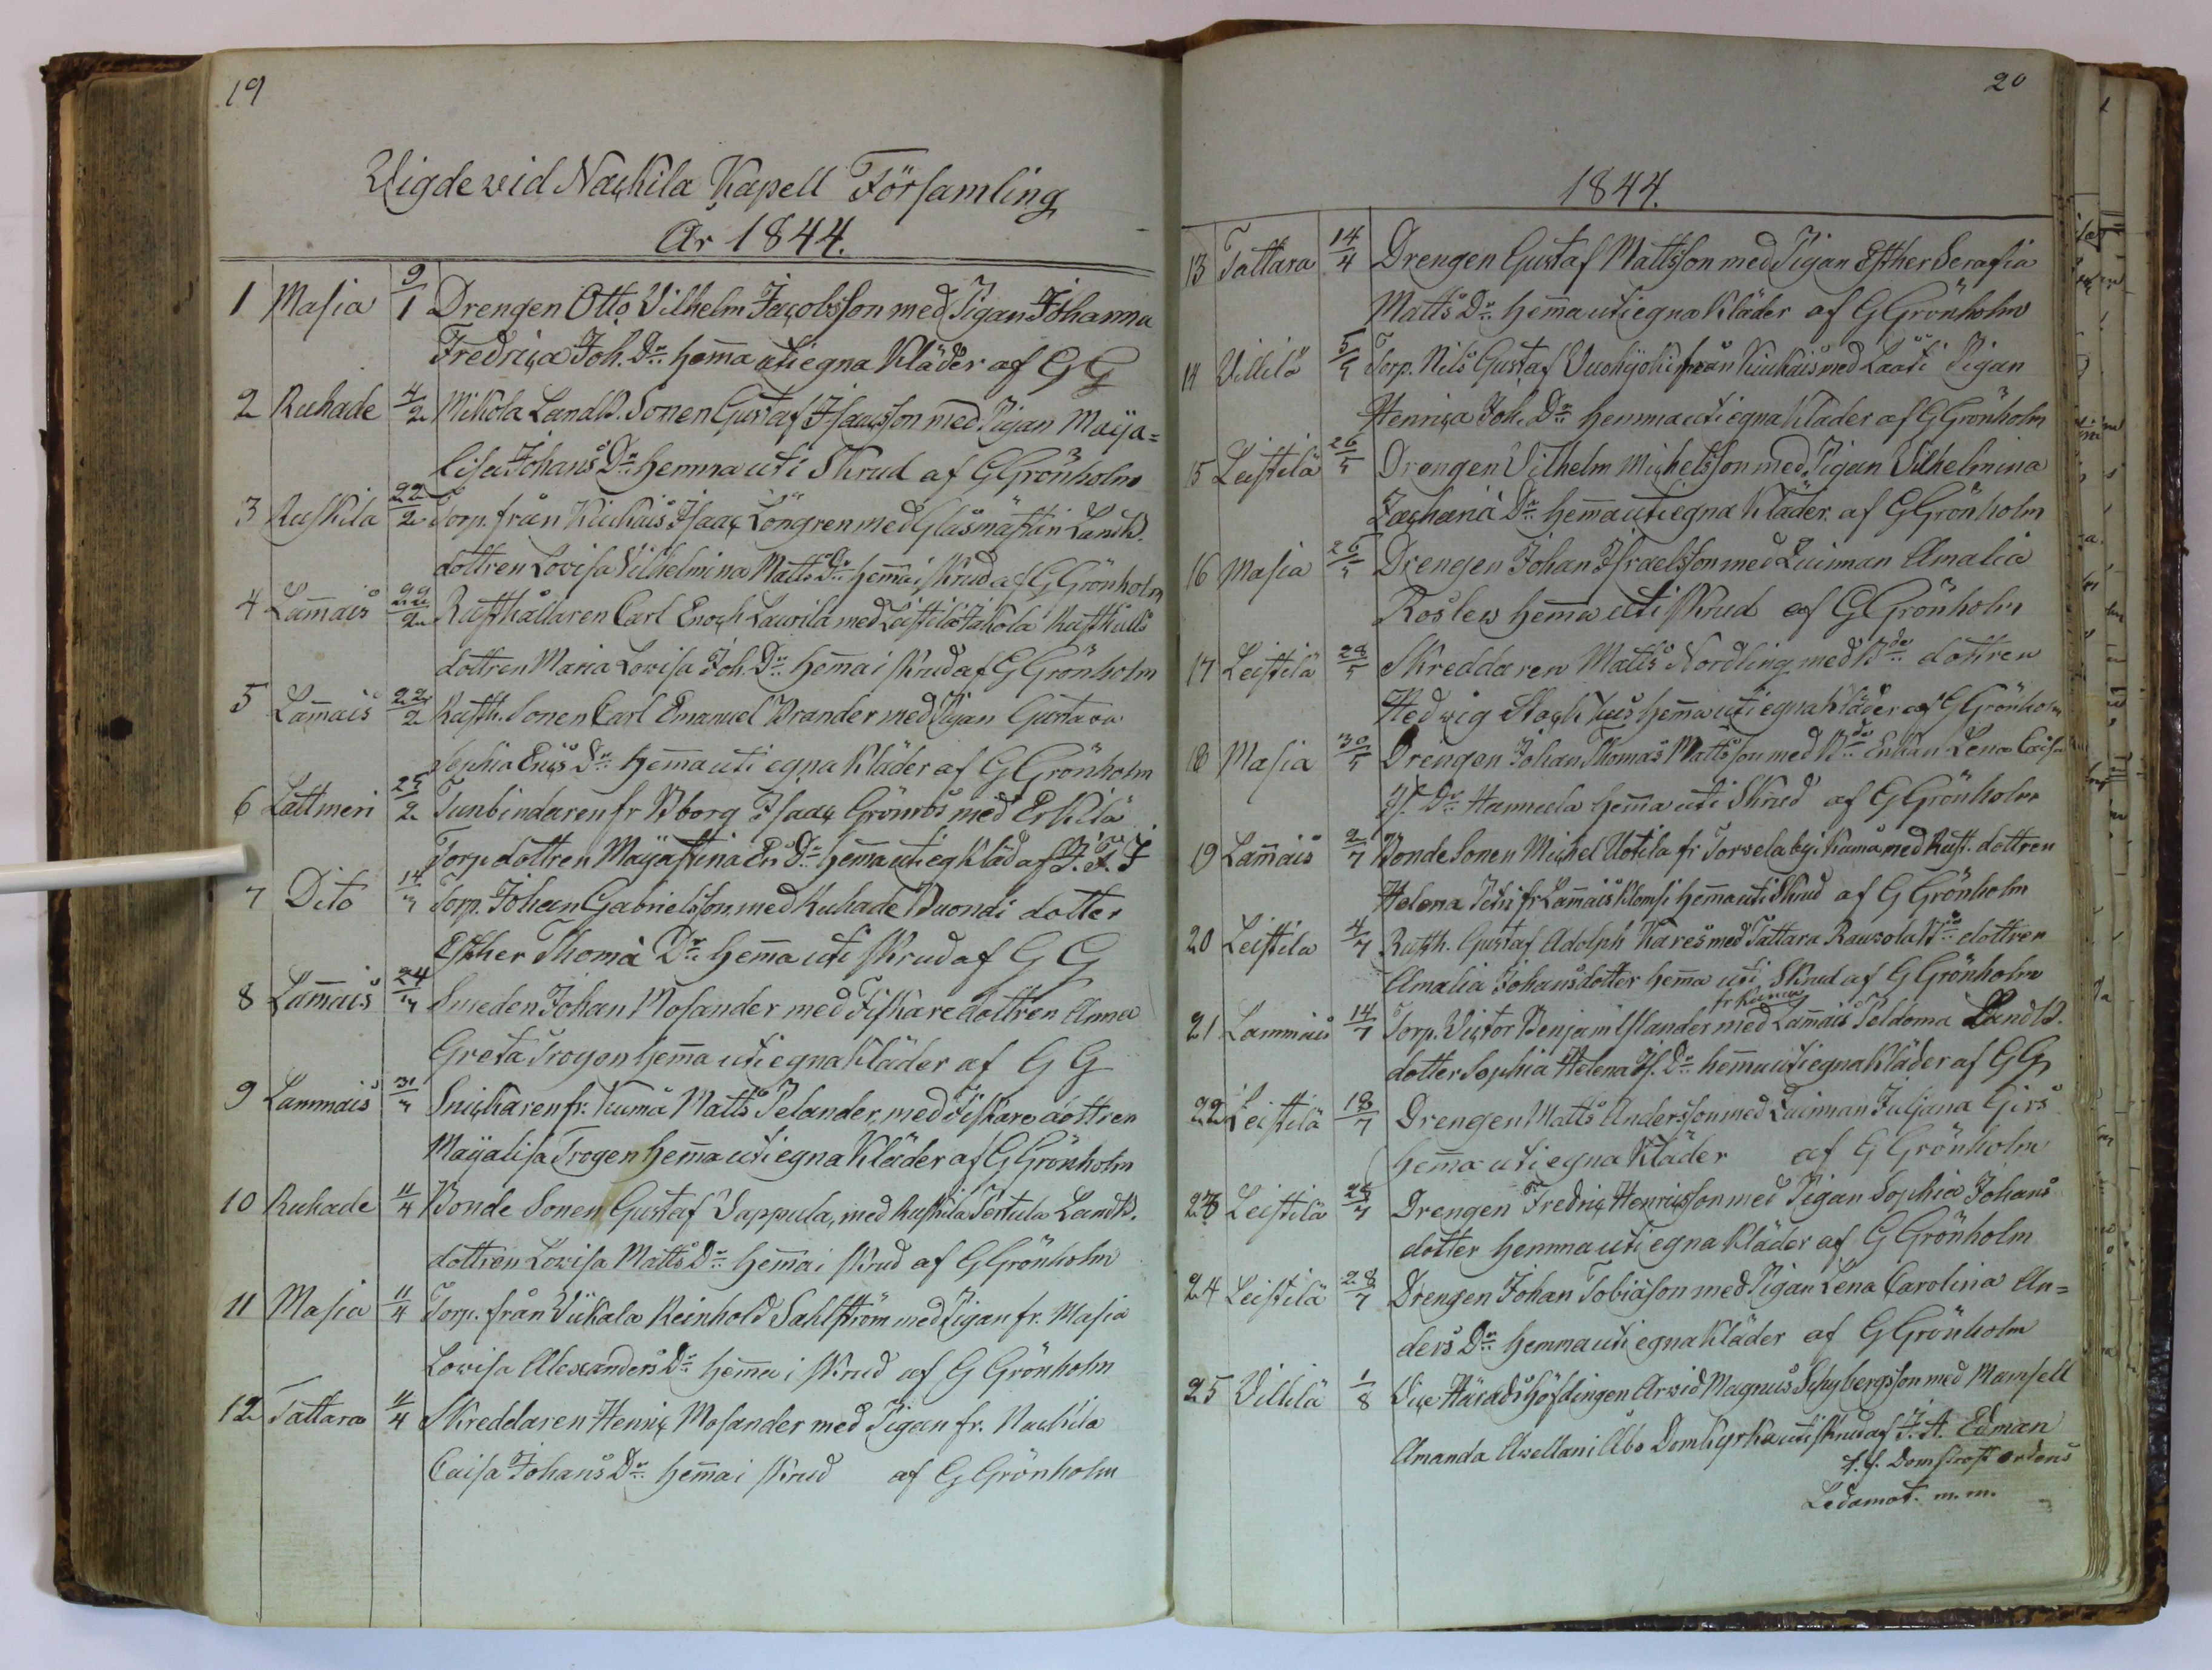 19
Vigde vid Nackila Kapell Församling
År 1844.
1 Masia 9/1 Drengen Otto Vilhelm Jacobsson med Pigan Johanna
Fredrica Joh. Dr. hem̄a uti egna Kläder af G G
2 Ruhade 4/2 Mikola Landb. Sonen Gustaf Isacsson med Pigan Maija=
lisa Johans Dr. hemma uti Skrud af G Grönholm
3 Ruskila 22/2 Torp. från Kiukais Isaac Löngren med Glasmästin Landb.
dottren Lovisa Vilhelmina Matts Dr. hem̄a i skrud af G Grönholm
4 Lam̄ais 22/2 Rusthållaren Carl Enoch Laurila med Leistilä Jakola Rusthålls
dottren Maria Lovisa Joh. Dr. hem̄a i skrud af G Grönholm
5 Lam̄ais 22/2 Rusth. Sonen Carl Emanuel Brander med Pigan Gustava
Sophia Erics Dr. hem̄a uti egna Kläder af G Grönholm
6 Lattmeri 25/2 Tunbindaren fr Bborg Isaac Grönros med Erkilä
Torp. dottren Maijastina Er. Dr. hem̄a uti eg Kläd af F. F. F
7 Dito 14/3 Torp. Johan Gabrielsson med Ruhade Buondi dotter
Esther Thomæ Dr. hem̄a uti skrud af G G
8 Lam̄ais 24/3 Smeden Johan Mosander med Fiskare dottren Anna
Greta Trogen hem̄a uti egna Kläder af G G
9 Lammais 31/3 Snickaren fr. Kumå Matts Pelander, med Fiskare dottren
Maijalisa Trogen hem̄a uti egna Kläder af G Grönholm
10 Ruhade 11/4 Bonde Sonen Gustaf Vappula, med Ruskila Pertula Landb.
dottren Lovisa Matts Dr. hem̄a i skrud af G Grönholm
11 Masia 11/4 Torp. från Viikala Reinhold Sahlström med Pigan fr. Masia
Lovisa Alexanders Dr. hem̄a i skrud af G Grönholm
12 Tattara 11/4 Skreddaren Henric Mosander med Pigan fr. Nackila
Caisa Johans Dr. hem̄a i skrud af G Grönholm
20
1844.
13 Tattara 14/4 Drengen Gustaf Mattsson med Pigan Esther Serafia
Matts Dr. hem̄a uti egna Kläder af G Grönholm
14 Villilä 5/5 Torp. Nils Gustaf Vuohijoki från Kiukais med Laati Pigan
Henrica Joh. Dr. hemma uti egna Kläder af G Grönholm
15 Leistilä 26/5 Drengen Vilhelm Michelsson med Pigan Vilhelmina
Zachariæ Dr. hem̄a uti egna Kläder af G Grönholm
16 Masia 26/5 Drengen Johan Israelsson med Quinnan Amalia
Roslew hem̄a uti skrud af G Grönholm
17 Leistilä 28/5 Skreddaren Matts Nordling med Bde dottren
Hedvig Stockus hem̄a uti egna kläder af G Grönholm
18 Masia 30/5 Drengen Johan Thomas Mattsson med Bde Enkan Lena Caisa
Is. Dr. Hannula hem̄a uti Skrud af G Grönholm
19 Lam̄ais 2/7 Bonde Sonen Michel Uotila fr Torvela by i Kumå med Rust. dottren
Helena fr Lam̄ais Klomsi hem̄a uti Skrud af G Grönholm
20 Leistila 4/7 Rusth. Gustaf Adolph Kares med Tattara Rauvola Bde dottren
Amalia Johansdotter hem̄a uti Skrud af G Grönholm
21 Lammais 14/7 Torp. Victor Benjam Islander fr Kumo med Lam̄ais Peldoma Landb.
dotter Sophia Helena Is. Dr. hem̄a uti egna Kläder af G G
22 Leistilä 18/7 Drengen Matts Andersson med Quinnan Juljana Girs
hem̄a uti egna Kläder af G Grönholm
23 Leistilä 26/7 Drengen Fredric Henricsson med Pigan Sophia Johans
dotter hemma uti egna Kläder af G Grönholm
24 Leistilä 28/7 Drengen Johan Tobiasson med Pigan Lena Carolina An=
ders Dr. hemma uti egna Kläder af G Grönholm
25 Villilä 1/8 Vice Häradshöfdingen Arvid Magnus Schybergsson med Mamsell
Amanda Avellan i Åbo Domkyrka uti skrud af F. A. Edman
Domprost ordens
Ledamot. m. m.